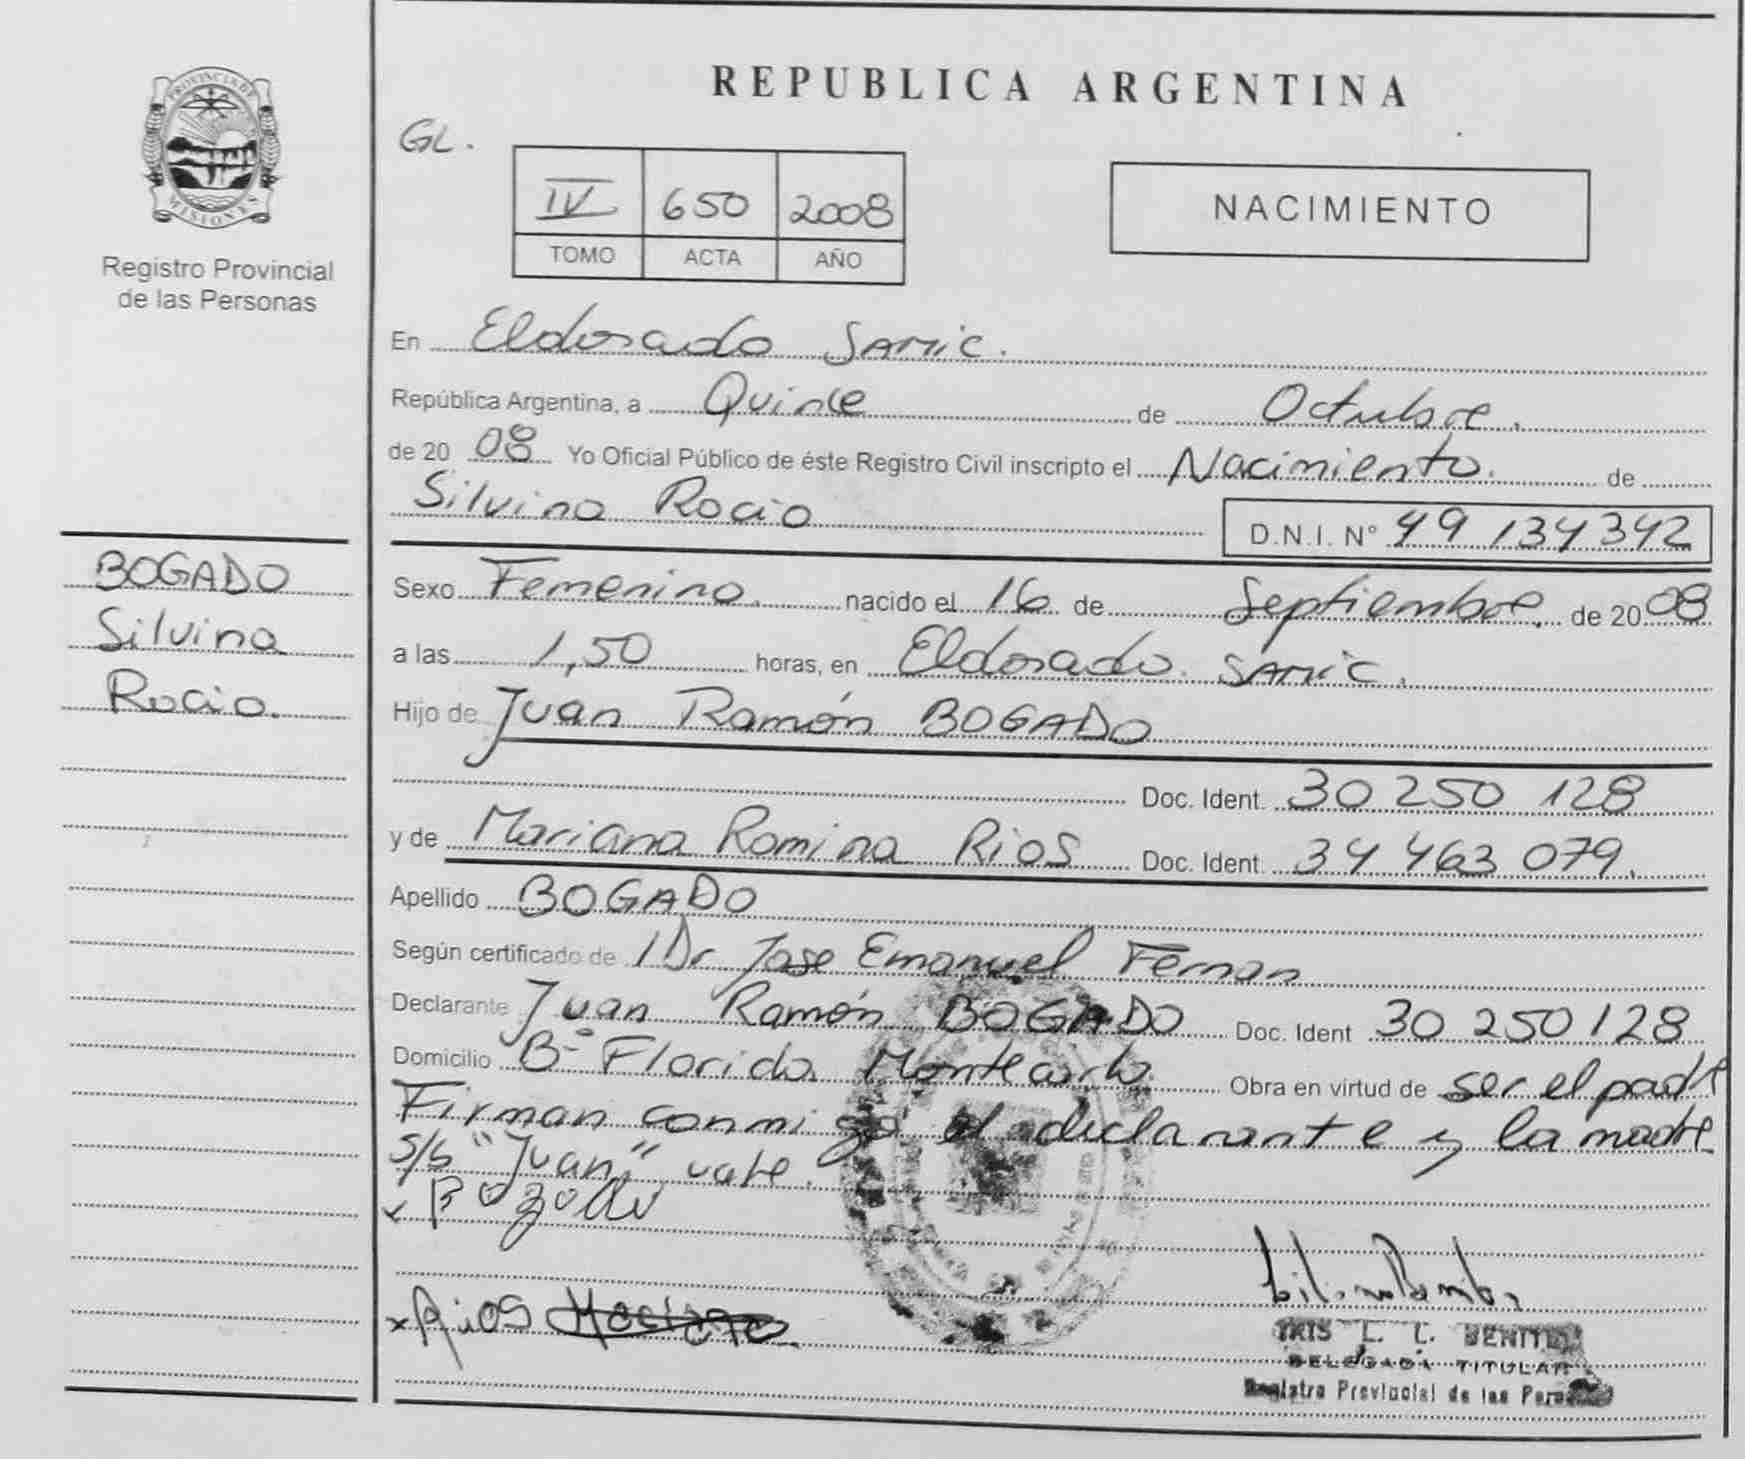 REPUBLICA ARGENTINA
PROVINCIA DE
MISIONES
Registro Provincial
de las Personas
GL.
IV 650 2008
TOMO ACTA AÑO
NACIMIENTO
En Eldorado SAMIC.
República Argentina, a Quince de Octubre.
de 20 08 Yo Oficial Público de éste Registro Civil inscripto el Nacimiento. de
Silvina Rocio D.N.I. Nº 49 134 342
BOGADO
Silvina
Rocio.
Sexo Femenino. nacido el 16 de Septiembre. de 20 08
a las 1,50 horas, en Eldorado. SAMIC.
Hijo de Juan Ramón BOGADO
Doc. Ident. 30 250 128
y de Mariana Romina Rios Doc. Ident. 34 463 079.
Apellido BOGADO
Según certificado de l Dr Jose Emanuel
Declarante Juan Ramón BOGADO Doc. Ident 30 250 128
Domicilio Bº Florida Montecarlo. Obra en virtud de ser el padre
Firman conmigo el declarante y la madre
S/b "Juan" vale.
x
x Rios
IRIS L. C. BENITEZ
DELEGADA TITULAR
Registro Provincial de las Personas